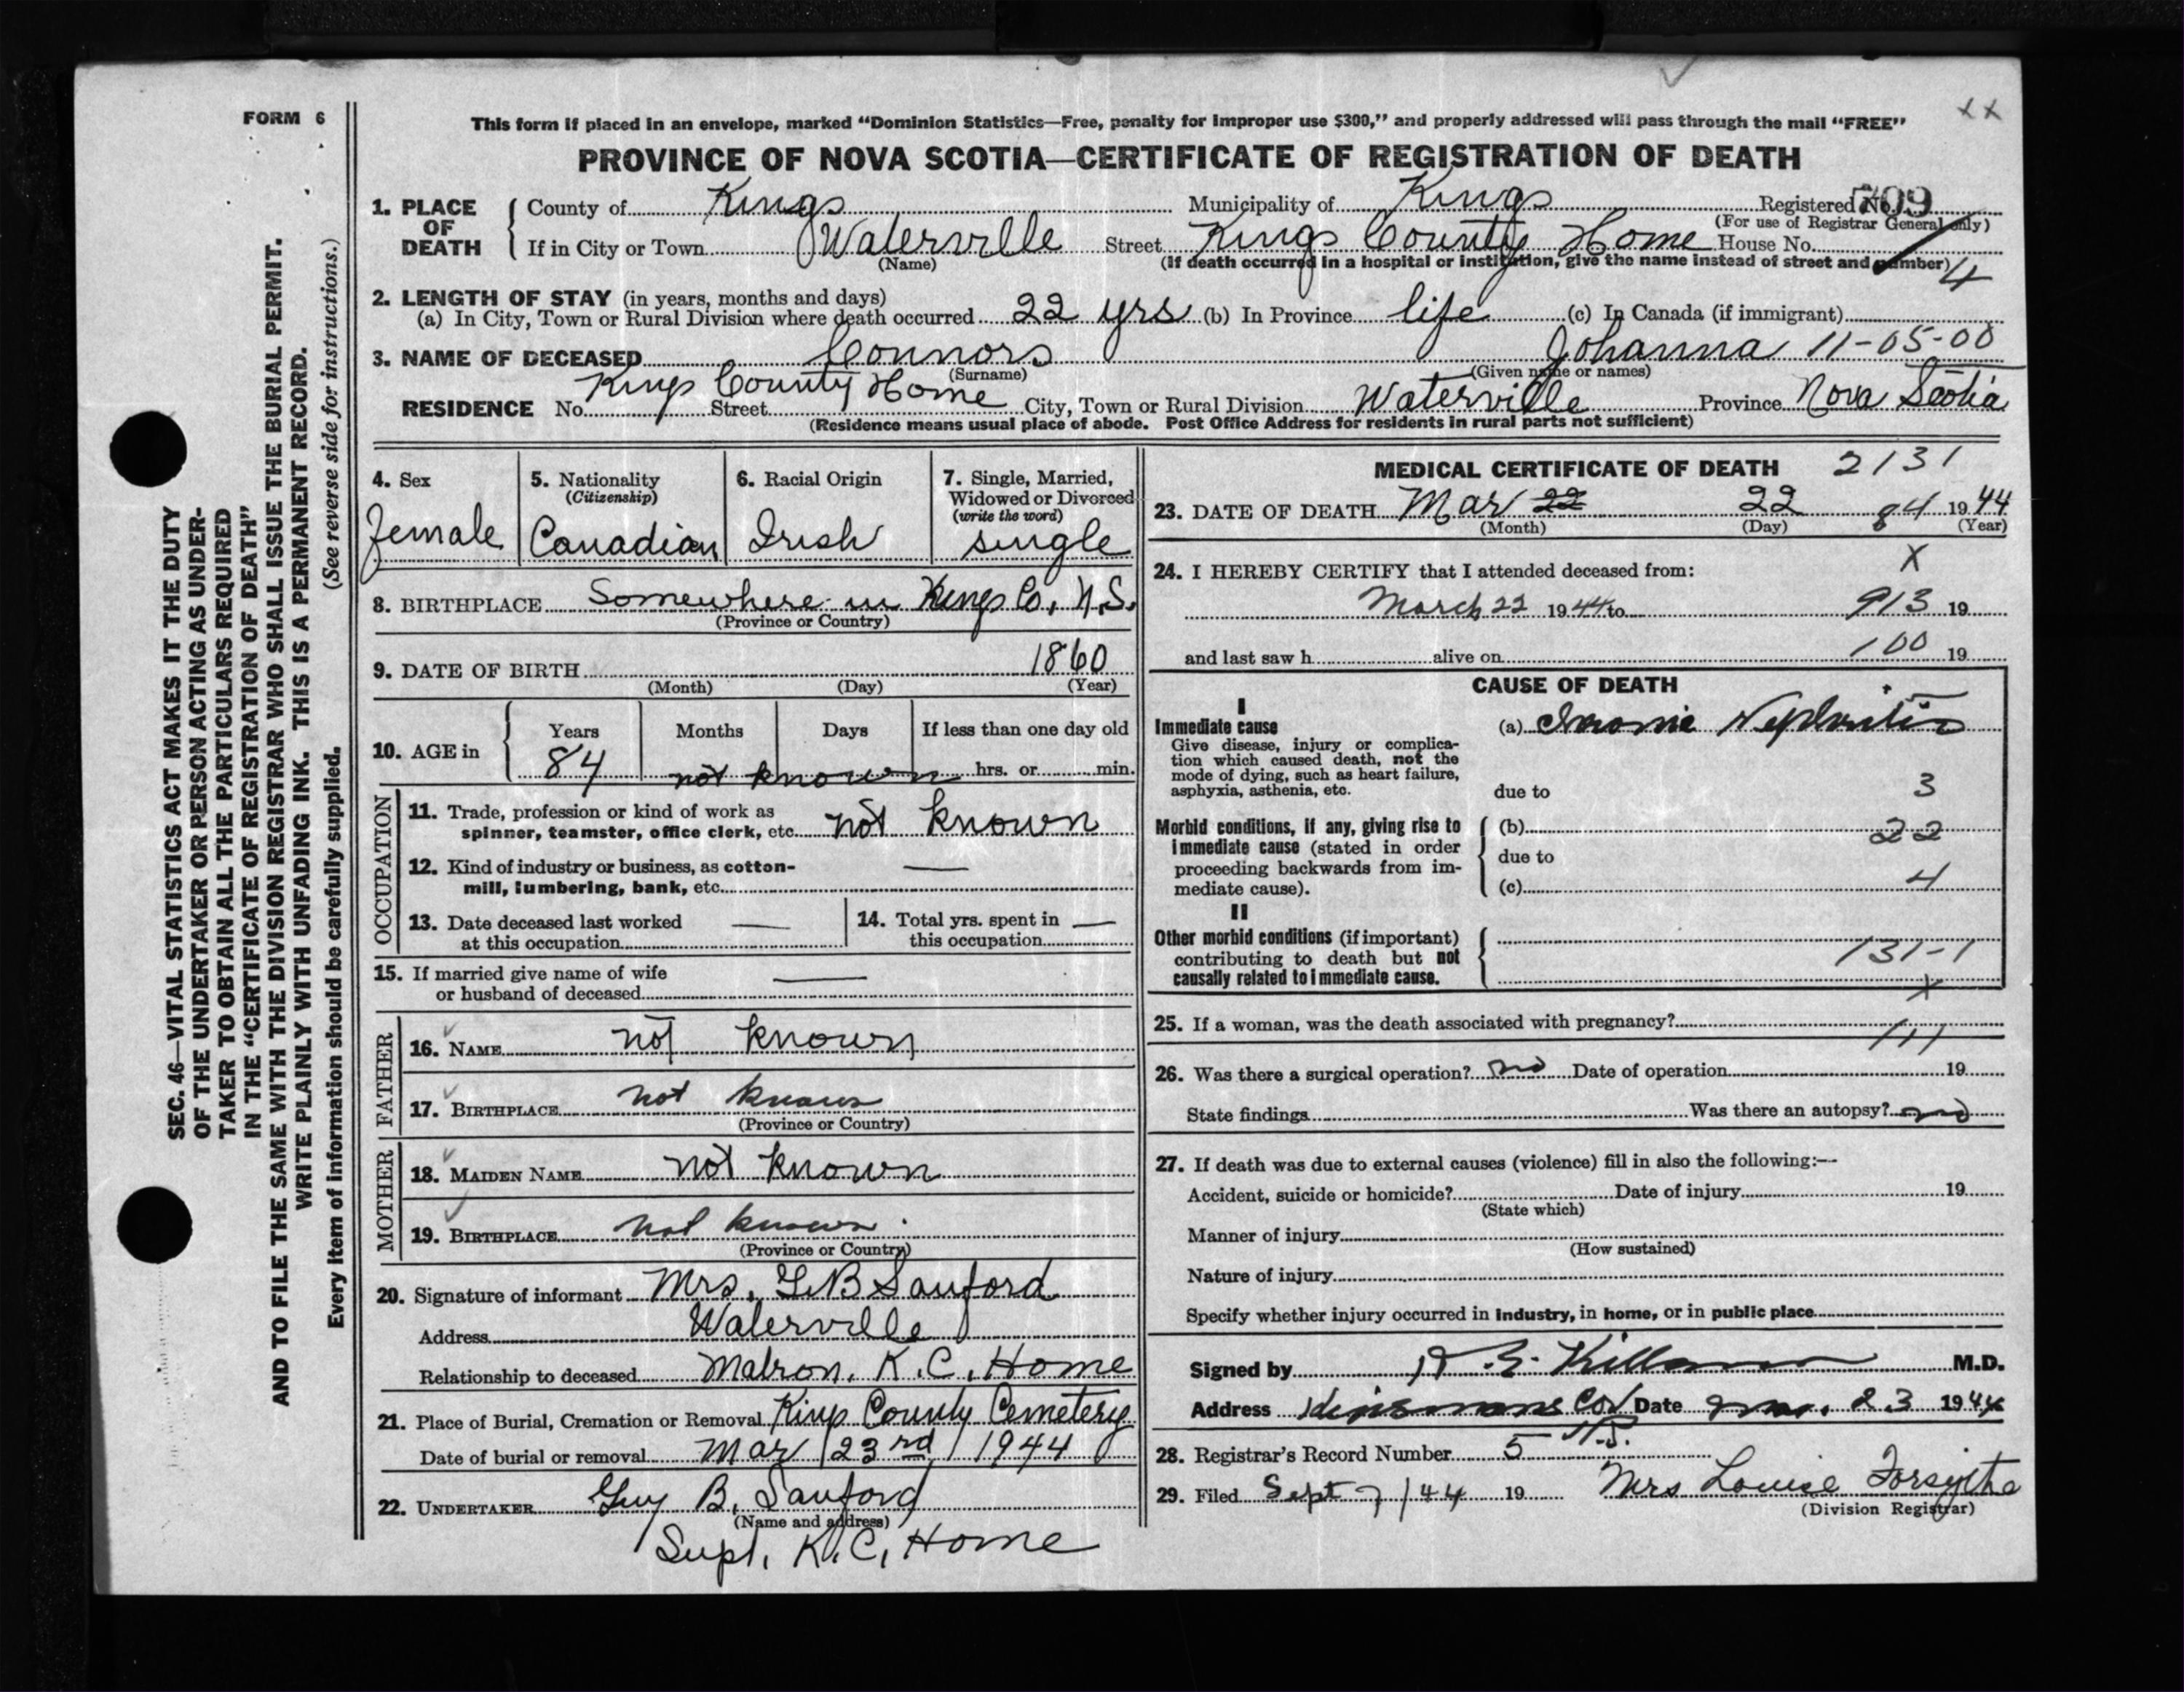 FORM 6
This form if placed in an envelope, marked “Dominion Statistics—Free, penalty for improper use $300,” and properly addressed will pass through the mail “FREE”
x x
PROVINCE OF NOVA SCOTIA—CERTIFICATE OF REGISTRATION OF DEATH
1. PLACE OF DEATH
County of Kings Municipality of Kings Registered No. 709
(For use of Registrar General only)
If in City or Town Waterville Street Kings County Home House No.
(Name) (If death occurred in a hospital or institution, give the name instead of street and number)
4
2. LENGTH OF STAY (in years, months and days)
(a) In City, Town or Rural Division where death occurred 22 yrs (b) In Province life (c) In Canada (if immigrant)
3. NAME OF DECEASED Connors Johanna 11-05-00
(Surname) (Given name or names)
RESIDENCE No. Street Kings County Home City, Town or Rural Division Waterville Province Nova Scotia
(Residence means usual place of abode. Post Office Address for residents in rural parts not sufficient)
4. Sex
female
5. Nationality
(Citizenship)
Canadian
6. Racial Origin
Irish
7. Single, Married,
Widowed or Divorced
(write the word)
single
8. BIRTHPLACE Somewhere in Kings Co, N.S.
(Province or Country)
9. DATE OF BIRTH 1860
(Month) (Day) (Year)
10. AGE in
Years Months Days If less than one day old
84 not known hrs. or min.
OCCUPATION
11. Trade, profession or kind of work as
spinner, teamster, office clerk, etc. not known
12. Kind of industry or business, as cotton-
mill, lumbering, bank, etc. —
13. Date deceased last worked
at this occupation —
14. Total yrs. spent in
this occupation —
15. If married give name of wife
or husband of deceased —
FATHER
16. NAME not known
17. BIRTHPLACE not known
(Province or Country)
MOTHER
18. MAIDEN NAME not known
19. BIRTHPLACE not known
(Province or Country)
20. Signature of informant Mrs. G.B Sanford
Address Waterville
Relationship to deceased Matron, K.C. Home
21. Place of Burial, Cremation or Removal Kings County Cemetery
Date of burial or removal Mar 23rd 1944
22. UNDERTAKER Guy B. Sanford
(Name and address)
Supt. K.C. Home
MEDICAL CERTIFICATE OF DEATH 2131
23. DATE OF DEATH Mar 22 22 84 1944
(Month) (Day) (Year)
24. I HEREBY CERTIFY that I attended deceased from: X
March 22 1944 to 913 19
and last saw h alive on 100 19
CAUSE OF DEATH
I
Immediate cause
Give disease, injury or complica-
tion which caused death, not the
mode of dying, such as heart failure,
asphyxia, asthenia, etc.
(a) Chronic Nephritis
due to 3
Morbid conditions, if any, giving rise to
immediate cause (stated in order
proceeding backwards from im-
mediate cause).
(b) 22
due to
(c) 4
II
Other morbid conditions (if important)
contributing to death but not
causally related to immediate cause.
131-1
X
25. If a woman, was the death associated with pregnancy?
111
26. Was there a surgical operation? no Date of operation 19
State findings Was there an autopsy? no
27. If death was due to external causes (violence) fill in also the following:—
Accident, suicide or homicide? Date of injury 19
(State which)
Manner of injury
(How sustained)
Nature of injury
Specify whether injury occurred in industry, in home, or in public place
Signed by M.D.
Address Kinsmans Cor Date Mar. 23 1944
N.S.
28. Registrar’s Record Number 5
29. Filed Sept 7/44 19 Mrs Louise Forsythe
(Division Registrar)
SEC. 46—VITAL STATISTICS ACT MAKES IT THE DUTY
OF THE UNDERTAKER OR PERSON ACTING AS UNDER-
TAKER TO OBTAIN ALL THE PARTICULARS REQUIRED
IN THE “CERTIFICATE OF REGISTRATION OF DEATH”
AND TO FILE THE SAME WITH THE DIVISION REGISTRAR WHO SHALL ISSUE THE BURIAL PERMIT.
WRITE PLAINLY WITH UNFADING INK. THIS IS A PERMANENT RECORD.
Every item of information should be carefully supplied. (See reverse side for instructions.)